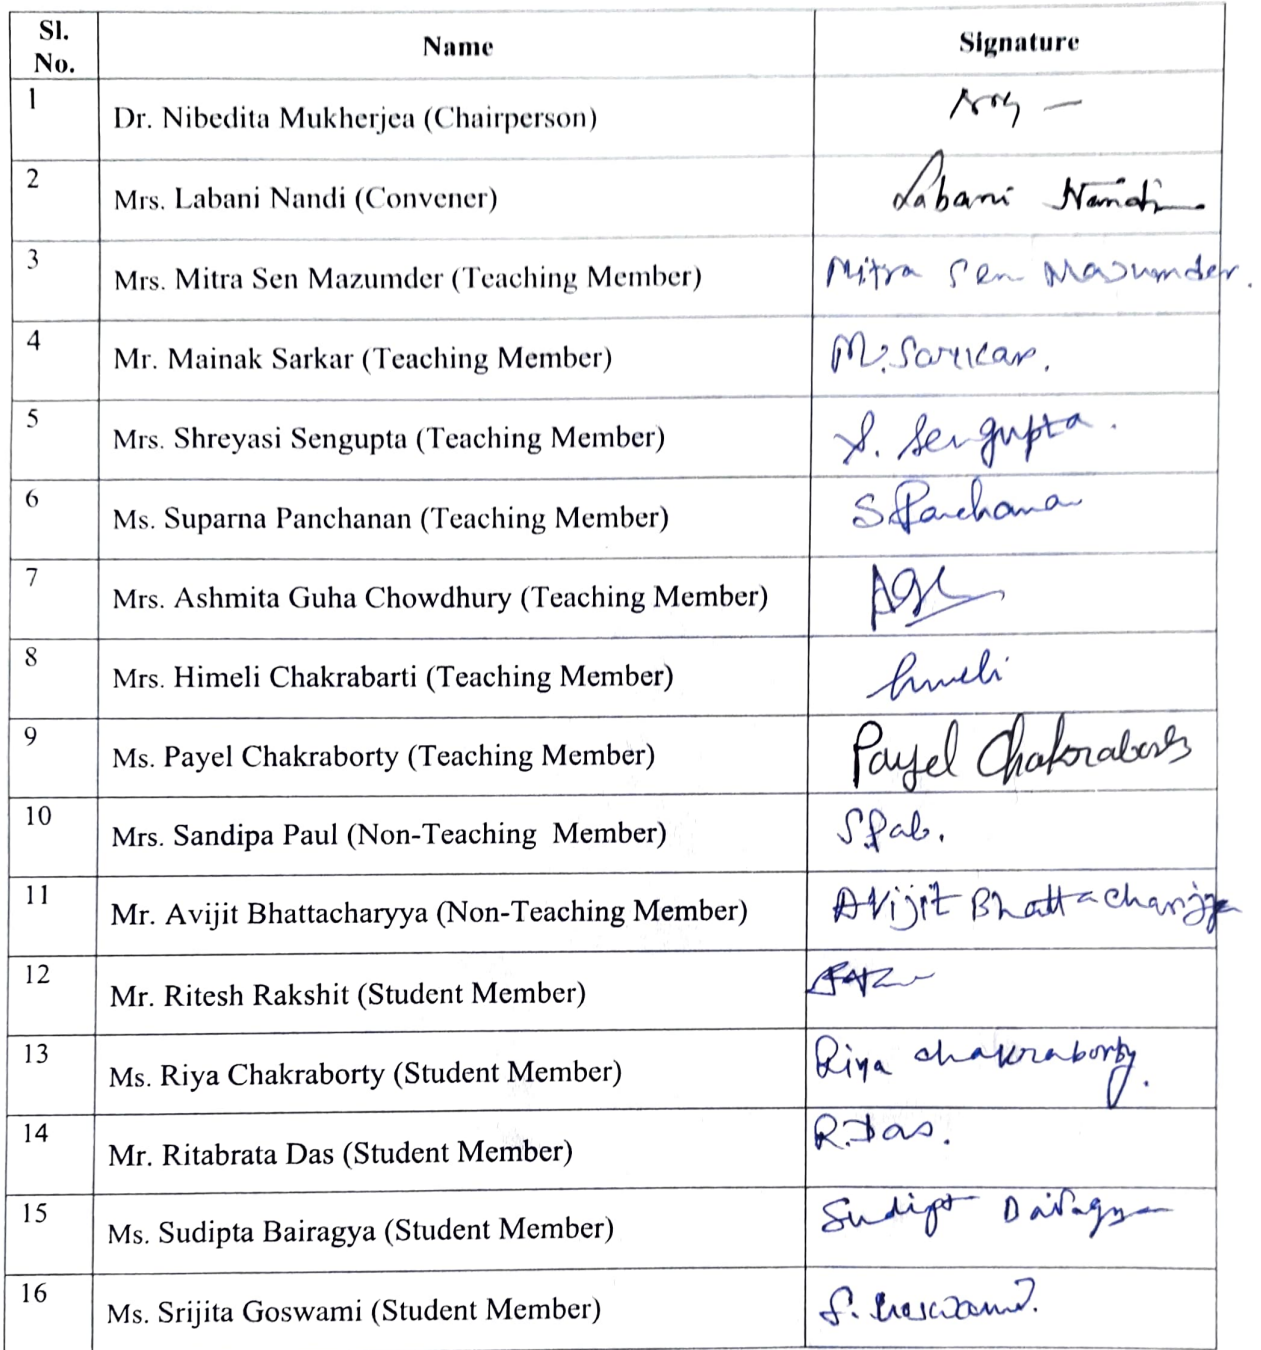 Sl. No. Name Signature
1 Dr. Nibedita Mukherjea (Chairperson)
2 Mrs. Labani Nandi (Convener) Labani Nandi
3 Mrs. Mitra Sen Mazumder (Teaching Member) Mitra Sen Mazumder.
4 Mr. Mainak Sarkar (Teaching Member) M. Sarkar.
5 Mrs. Shreyasi Sengupta (Teaching Member) S. Sengupta.
6 Ms. Suparna Panchanan (Teaching Member) S Panchana
7 Mrs. Ashmita Guha Chowdhury (Teaching Member) AGC
8 Mrs. Himeli Chakrabarti (Teaching Member) himeli
9 Ms. Payel Chakraborty (Teaching Member) Payel Chakraborty
10 Mrs. Sandipa Paul (Non-Teaching Member) S.Pal.
11 Mr. Avijit Bhattacharyya (Non-Teaching Member) Avijit Bhattacharjya
12 Mr. Ritesh Rakshit (Student Member)
13 Ms. Riya Chakraborty (Student Member) Riya chakraborty.
14 Mr. Ritabrata Das (Student Member) R.Das.
15 Ms. Sudipta Bairagya (Student Member) Sudipta Bairagya
16 Ms. Srijita Goswami (Student Member) S. Goswami.